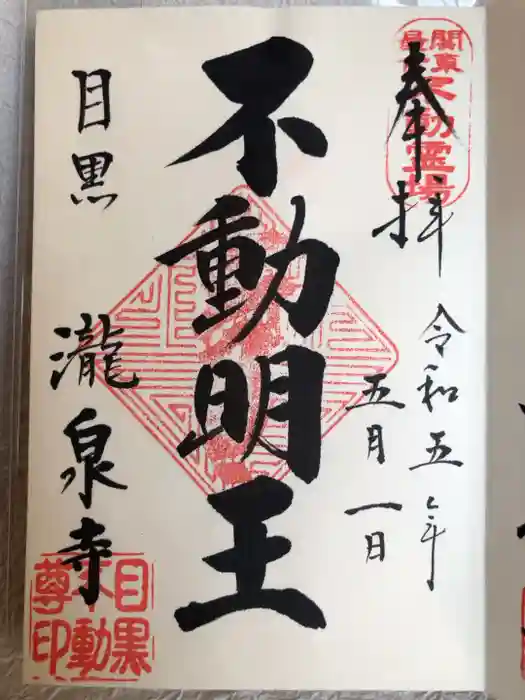 奉拝
令和五年
五月一日
不動明王
目黒
瀧泉寺
関東最
不動霊場
目黒
不動
尊印